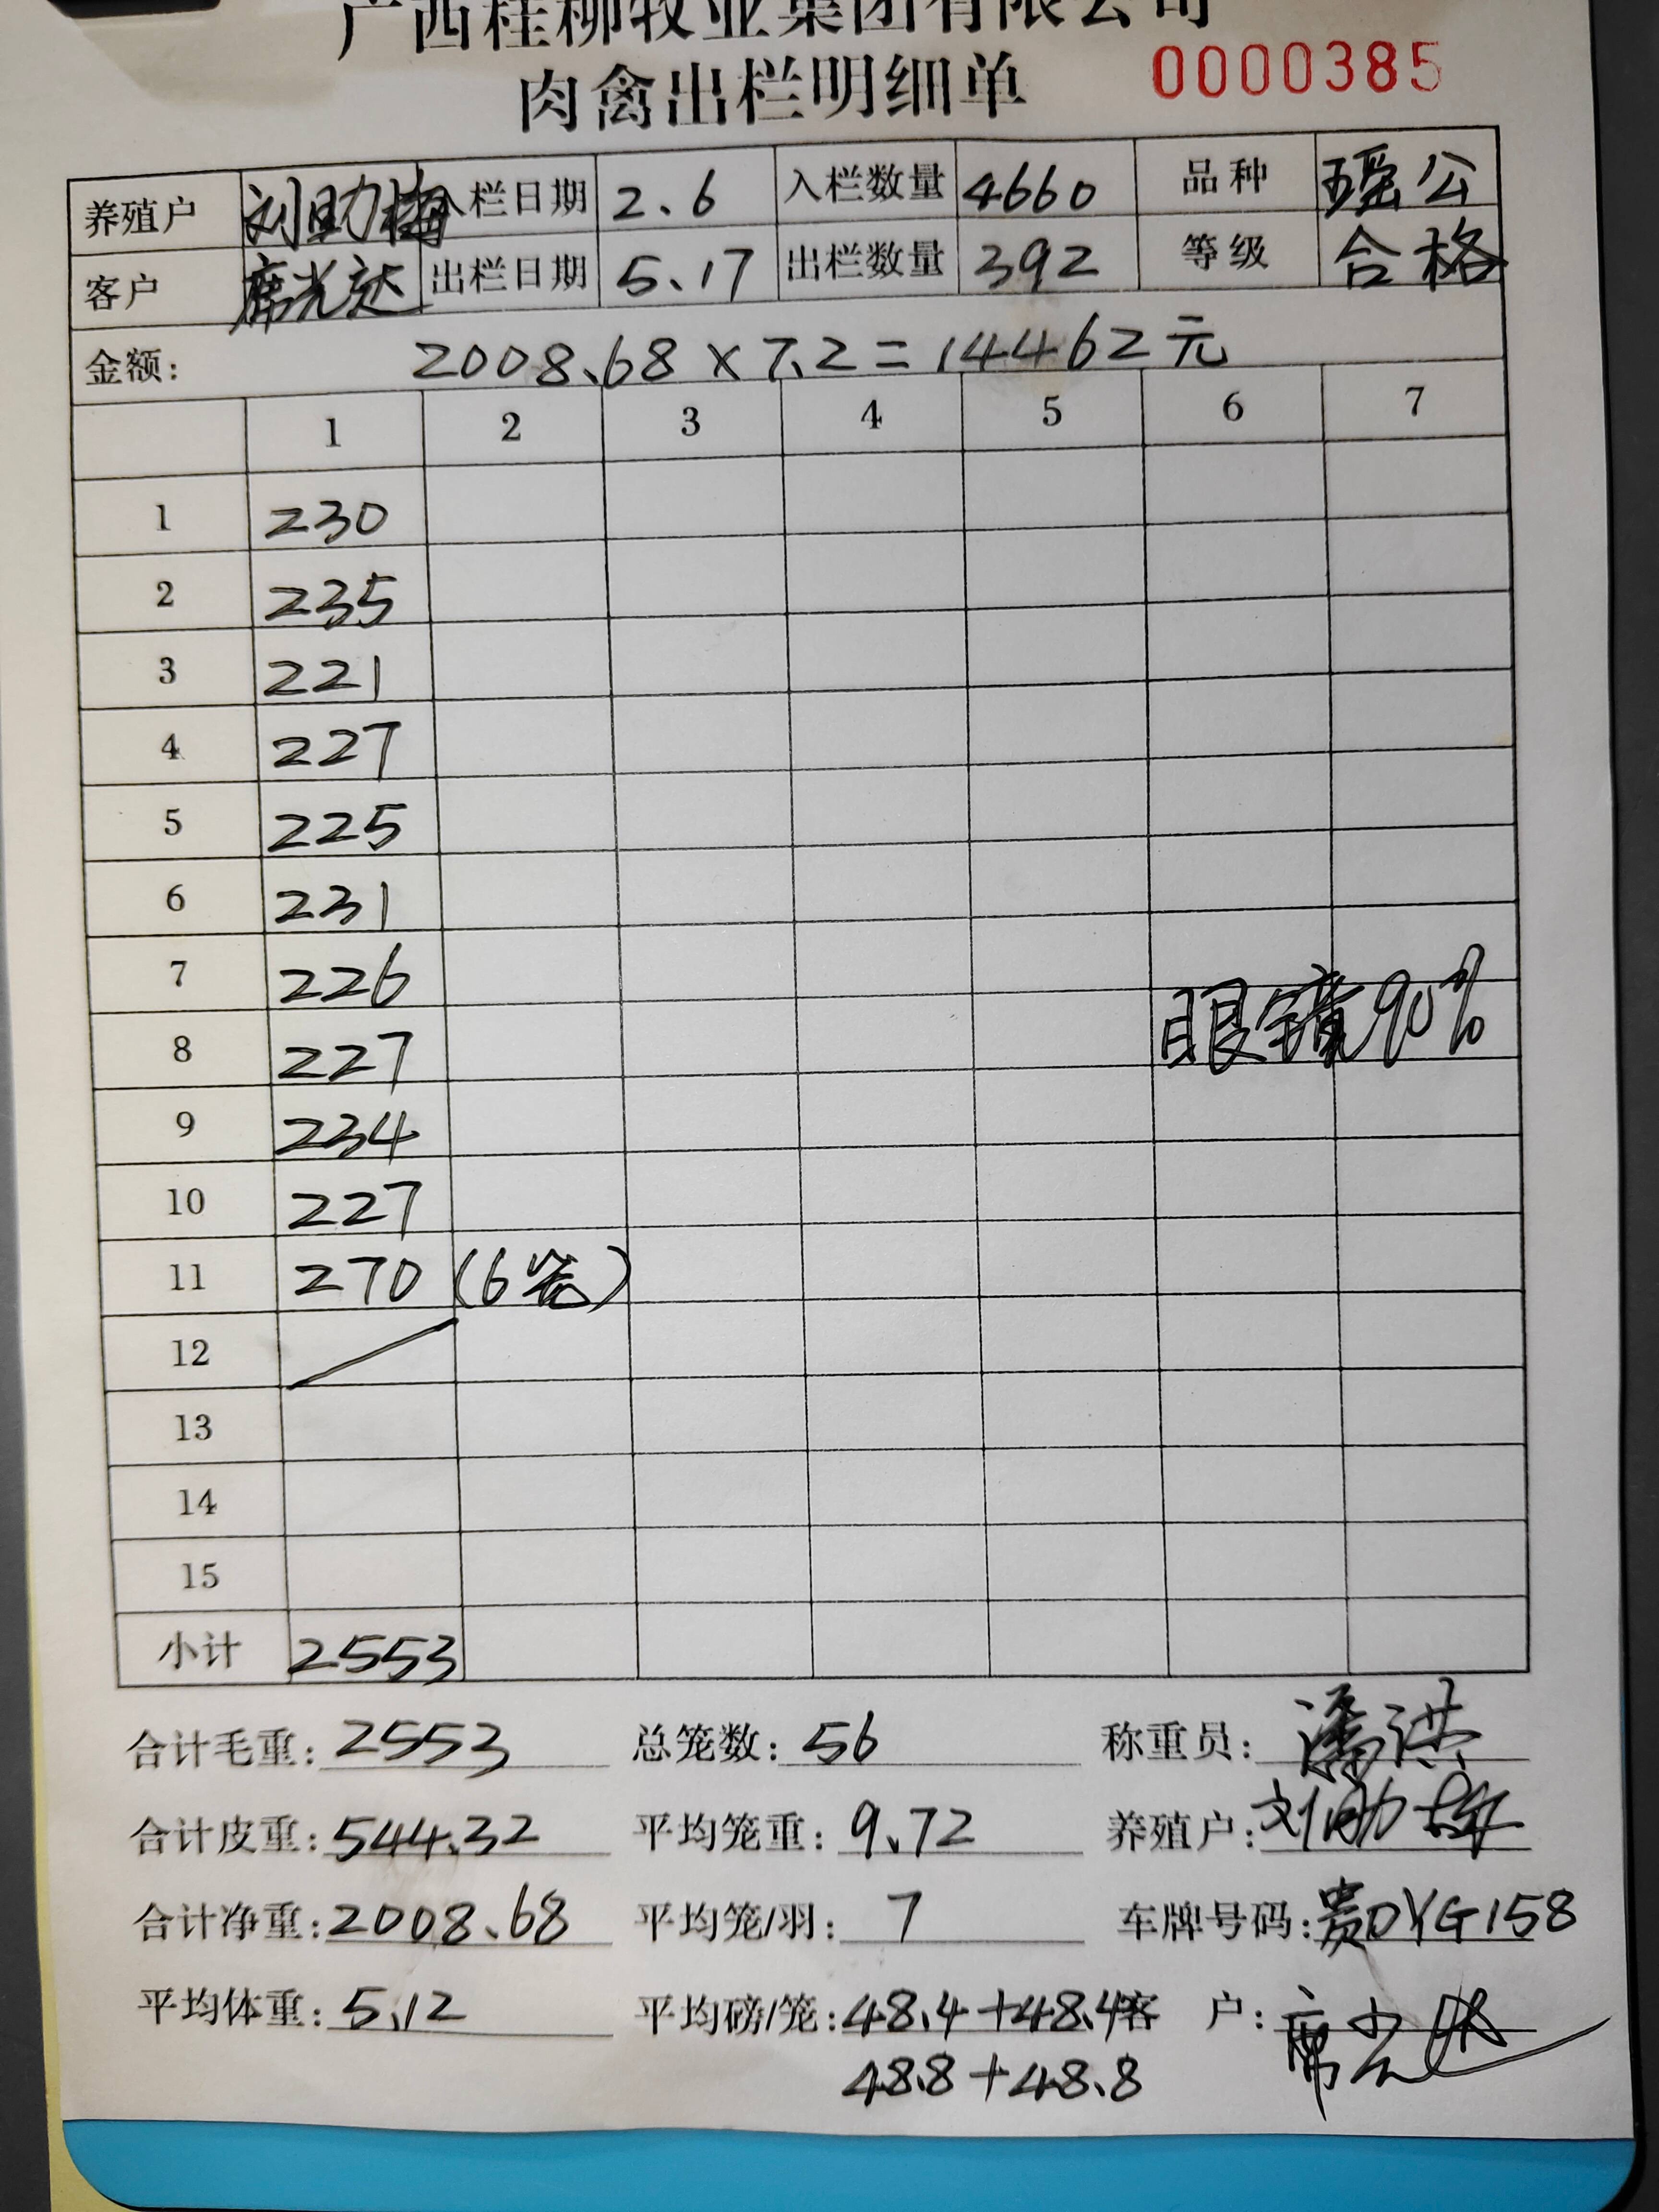 广西桂柳牧业集团有限公司
肉禽出栏明细单 0000385
养殖户 刘助梅 入栏日期 2.6 入栏数量 4660 品种 瑶公
客户 席光达 出栏日期 5.17 出栏数量 392 等级 合格
金额: 2008.68×7.2=14462元
1 2 3 4 5 6 7
1 230
2 235
3 221
4 227
5 225
6 231
7 226
眼镜90%
8 227
9 234
10 227
11 270 (6笼)
12
13
14
15
小计 2553
合计毛重: 2553 总笼数: 56 称重员: 潘洪
合计皮重: 544.32 平均笼重: 9.72 养殖户: 刘助梅
合计净重: 2008.68 平均笼/羽: 7 车牌号码: 贵DYG158
平均体重: 5.12 平均磅/笼: 48.4+48.4 客 户: 席光达
48.8+48.8